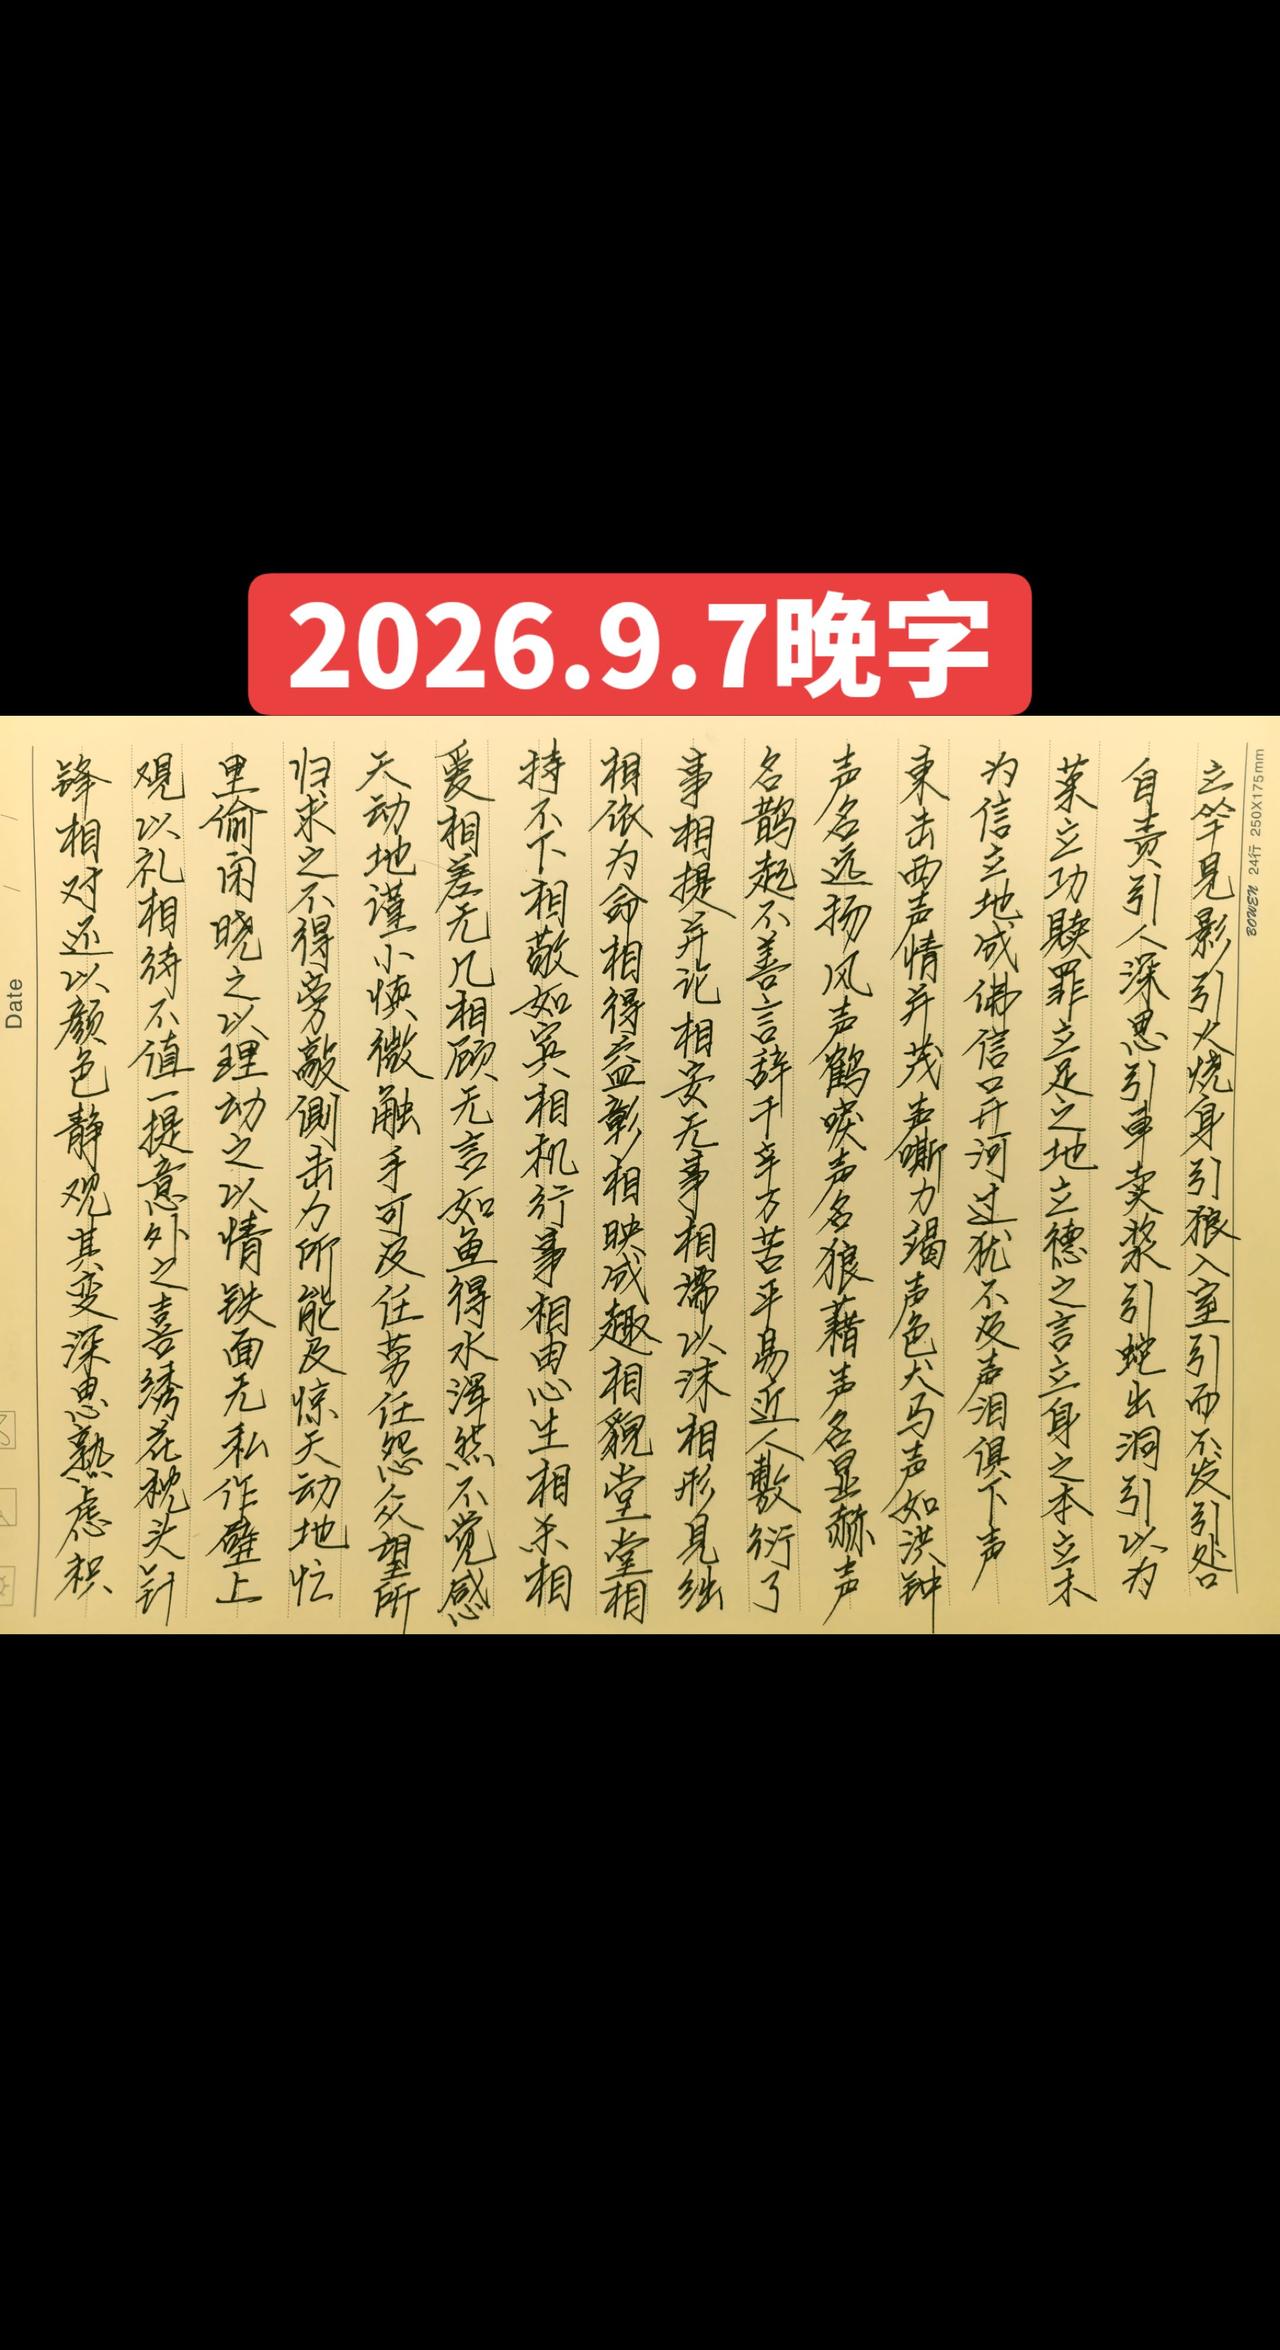 2026.9.7晚字
BOWEN 24行 250X175mm
立竿见影引火烧身引狼入室引而不发引咎
自责引人深思引车卖浆引蛇出洞引以为
荣立功赎罪立足之地立德之言立身之本立木
为信立地成佛信口开河过犹不及声泪俱下声
东击西声情并茂声嘶力竭声色犬马声如洪钟
声名远扬风声鹤唳声名狼藉声名显赫声
名鹊起不善言辞千辛万苦平易近人敷衍了
事相提并论相安无事相濡以沫相形见绌
相依为命相得益彰相映成趣相貌堂堂相
持不下相敬如宾相机行事相由心生相杀相
爱相差无几相顾无言如鱼得水浑然不觉感
天动地谨小慎微触手可及任劳任怨众望所
归求之不得旁敲侧击力所能及惊天动地忙
里偷闲晓之以理动之以情铁面无私作壁上
观以礼相待不值一提意外之喜绣花枕头针
锋相对还以颜色静观其变深思熟虑积
Date / /